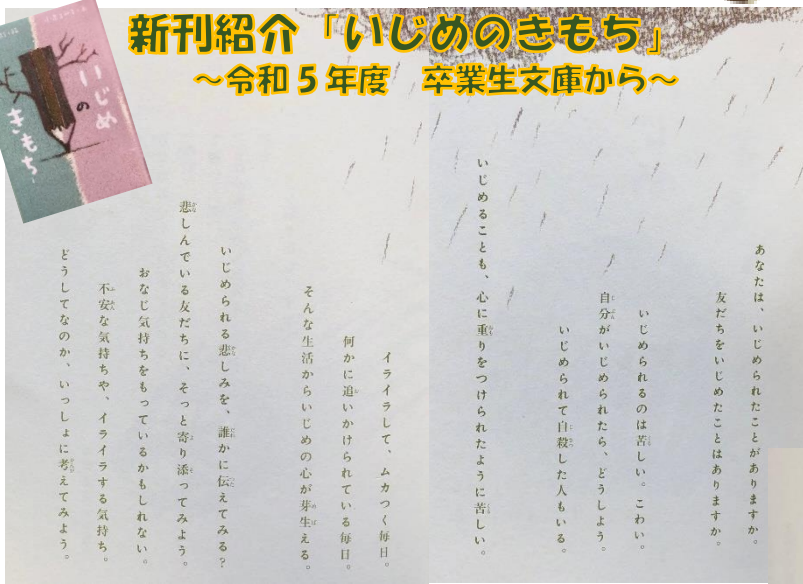 新刊紹介「いじめのきもち」
～令和５年度　卒業生文庫から～
いじめ
の
きもち
あなたは、いじめられたことがありますか。
友だちをいじめたことはありますか。
いじめられるのは苦しい。こわい。
自分がいじめられたら、どうしよう。
いじめられて自殺した人もいる。
いじめることも、心に重りをつけられたように苦しい。
イライラして、ムカつく毎日。
何かに追いかけられている毎日。
そんな生活からいじめの心が芽生える。
いじめられる悲しみを、誰かに伝えてみる？
悲しんでいる友だちに、そっと寄り添ってみよう。
おなじ気持ちをもっているかもしれない。
不安な気持ちや、イライラする気持ち。
どうしてなのか、いっしょに考えてみよう。